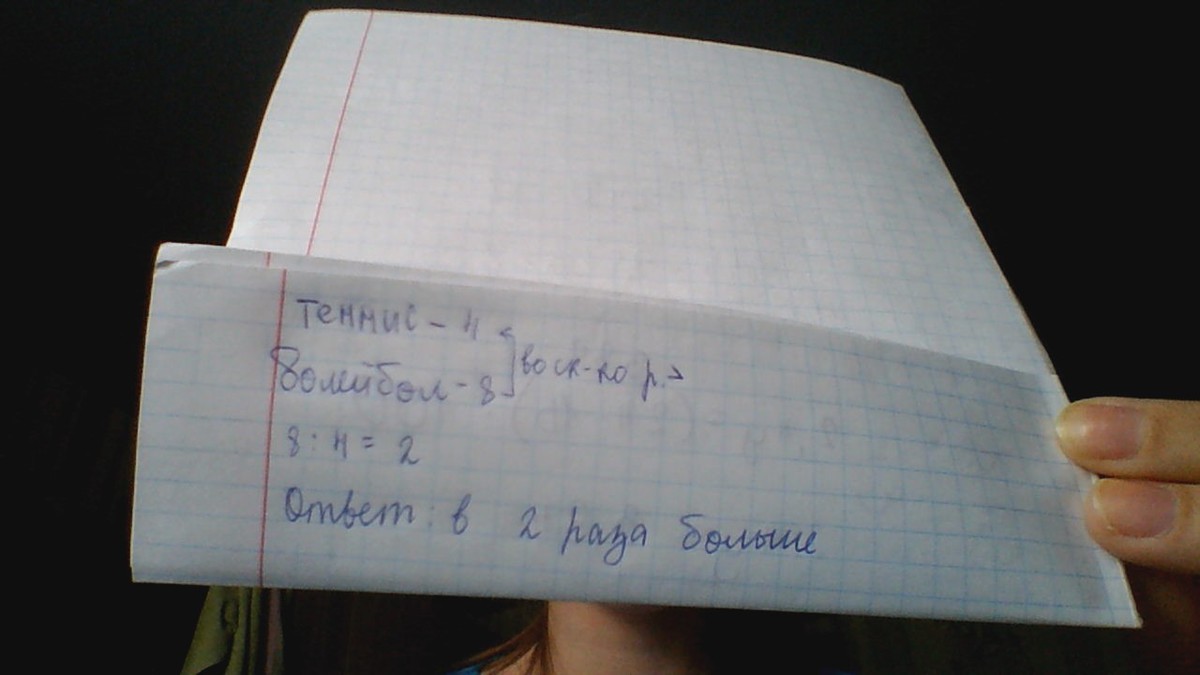 Теннис - 4
Волейбол - 8 во ск-ко р. >
8 : 4 = 2
Ответ: в 2 раза больше